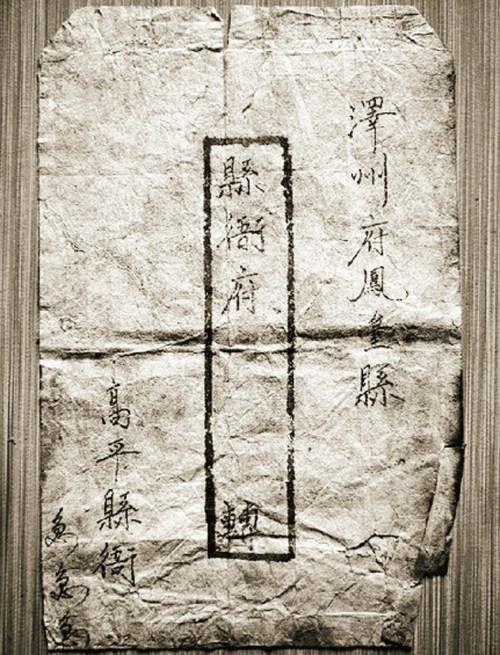 澤州府鳳臺縣
縣衙府
轉
高平縣衙
急急急